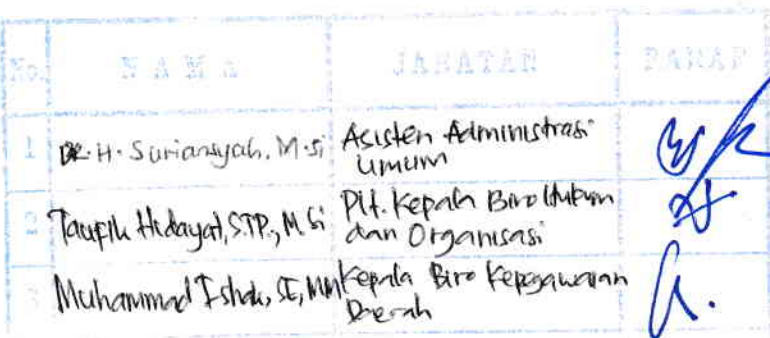 No. N A M A JABATAN PARAF
1 DR. H. Suriansyah. M.Si Asisten Administrasi
Umum
2 Taufik Hidayat, STP., M.Si Plt. Kepala Biro Hukum
dan Organisasi
3 Muhammad Ishak, SE, MM Kepala Biro Kepegawaian
Daerah